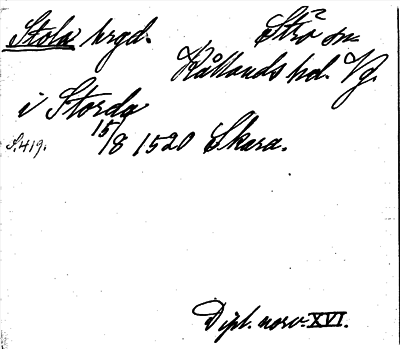 Stola hrgd. Strö sn
Kållands hd. Vg.
i Storda
S. 419. 15/8 1520 Skara.
Dipl. norv. XVI.